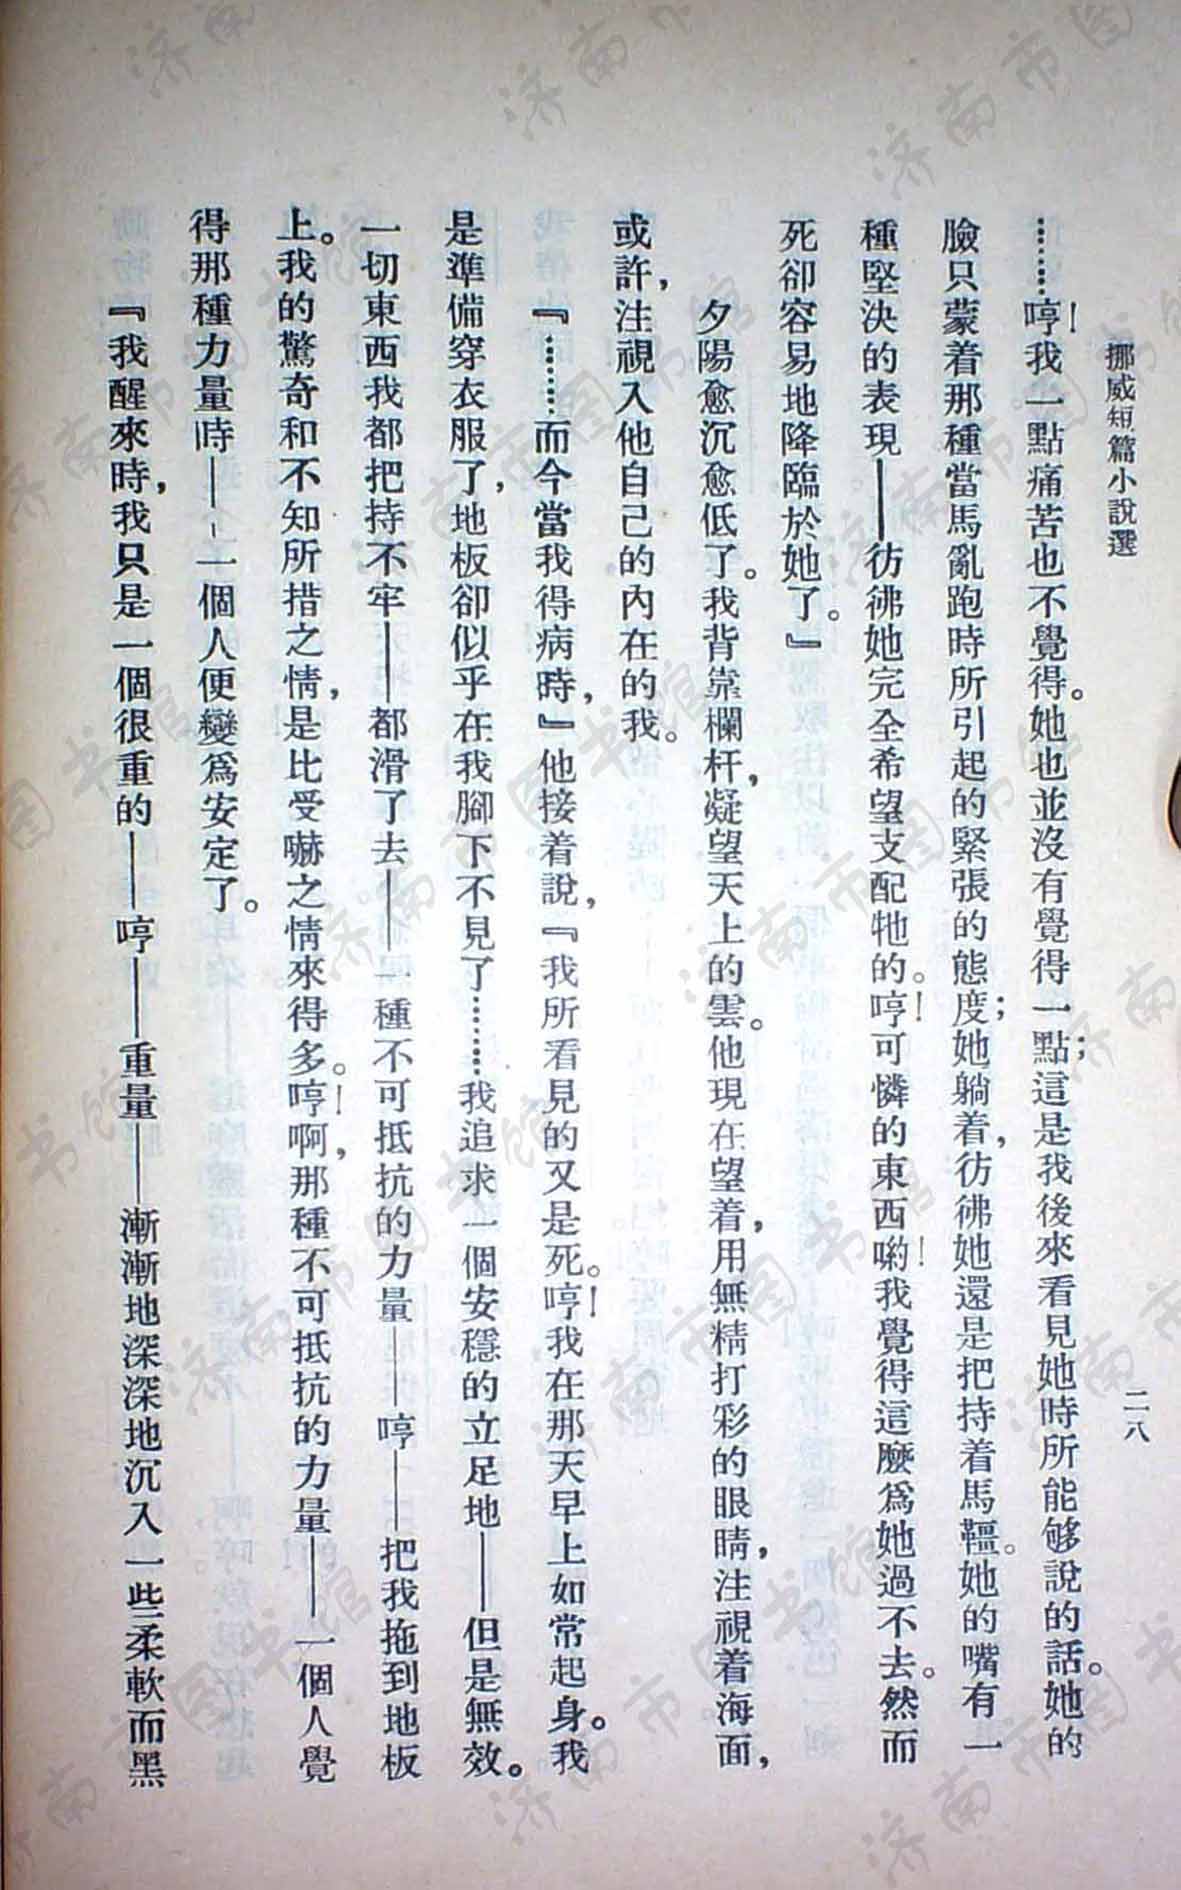 挪威短篇小說選
二八
……哼！我一點痛苦也不覺得。她也並沒有覺得一點；這是我後來看見她時所能够說的話。她的
臉只蒙着那種當馬亂跑時所引起的緊張的態度；她躺着，彷彿她還是把持着馬韁。她的嘴有一
種堅決的表現——彷彿她完全希望支配牠的。哼！可憐的東西喲！我覺得這麼爲她過不去。然而
死卻容易地降臨於她了。』
夕陽愈沉愈低了。我背靠欄杆，凝望天上的雲。他現在望着，用無精打彩的眼睛，注視着海面，
或許，注視入他自己的內在的我。
『……而今當我得病時，』他接着說，『我所看見的又是死。哼！我在那天早上如常起身。我
是準備穿衣服了，地板卻似乎在我腳下不見了……我追求一個安穩的立足地——但是無效。
一切東西我都把持不牢——都滑了去——一種不可抵抗的力量——哼——把我拖到地板
上。我的驚奇和不知所措之情，是比受嚇之情來得多。哼！啊，那種不可抵抗的力量——一個人覺
得那種力量時——一個人便變爲安定了。
『我醒來時，我只是一個很重的——哼——重量——漸漸地深深地沉入一些柔軟而黑
济南市图书馆